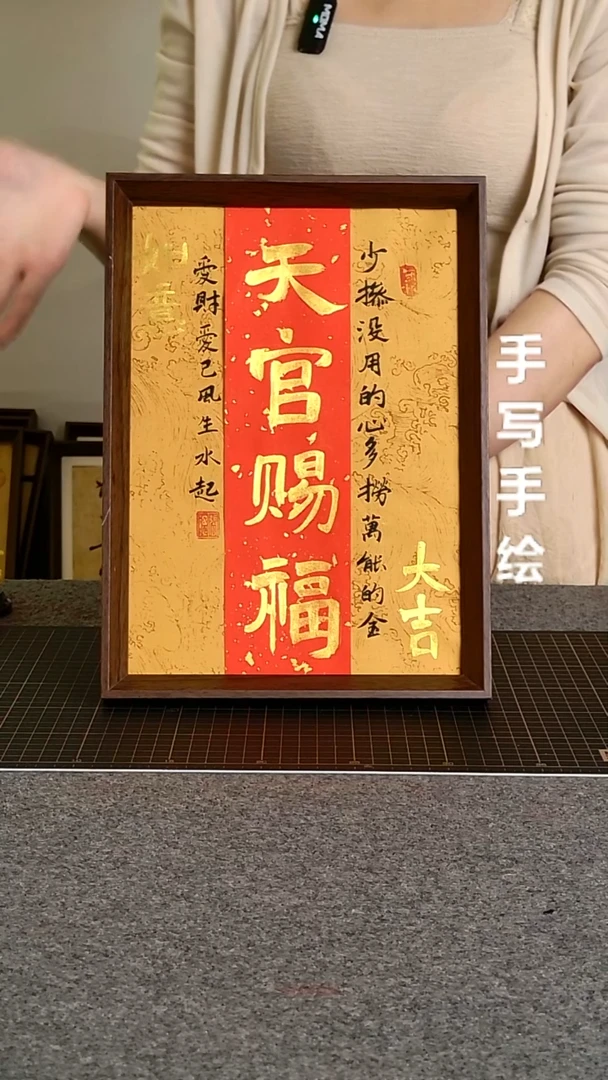 少掺没用的心多捞萬能的金
大吉
天官赐福
受財愛己风生水起
如意
手写手绘